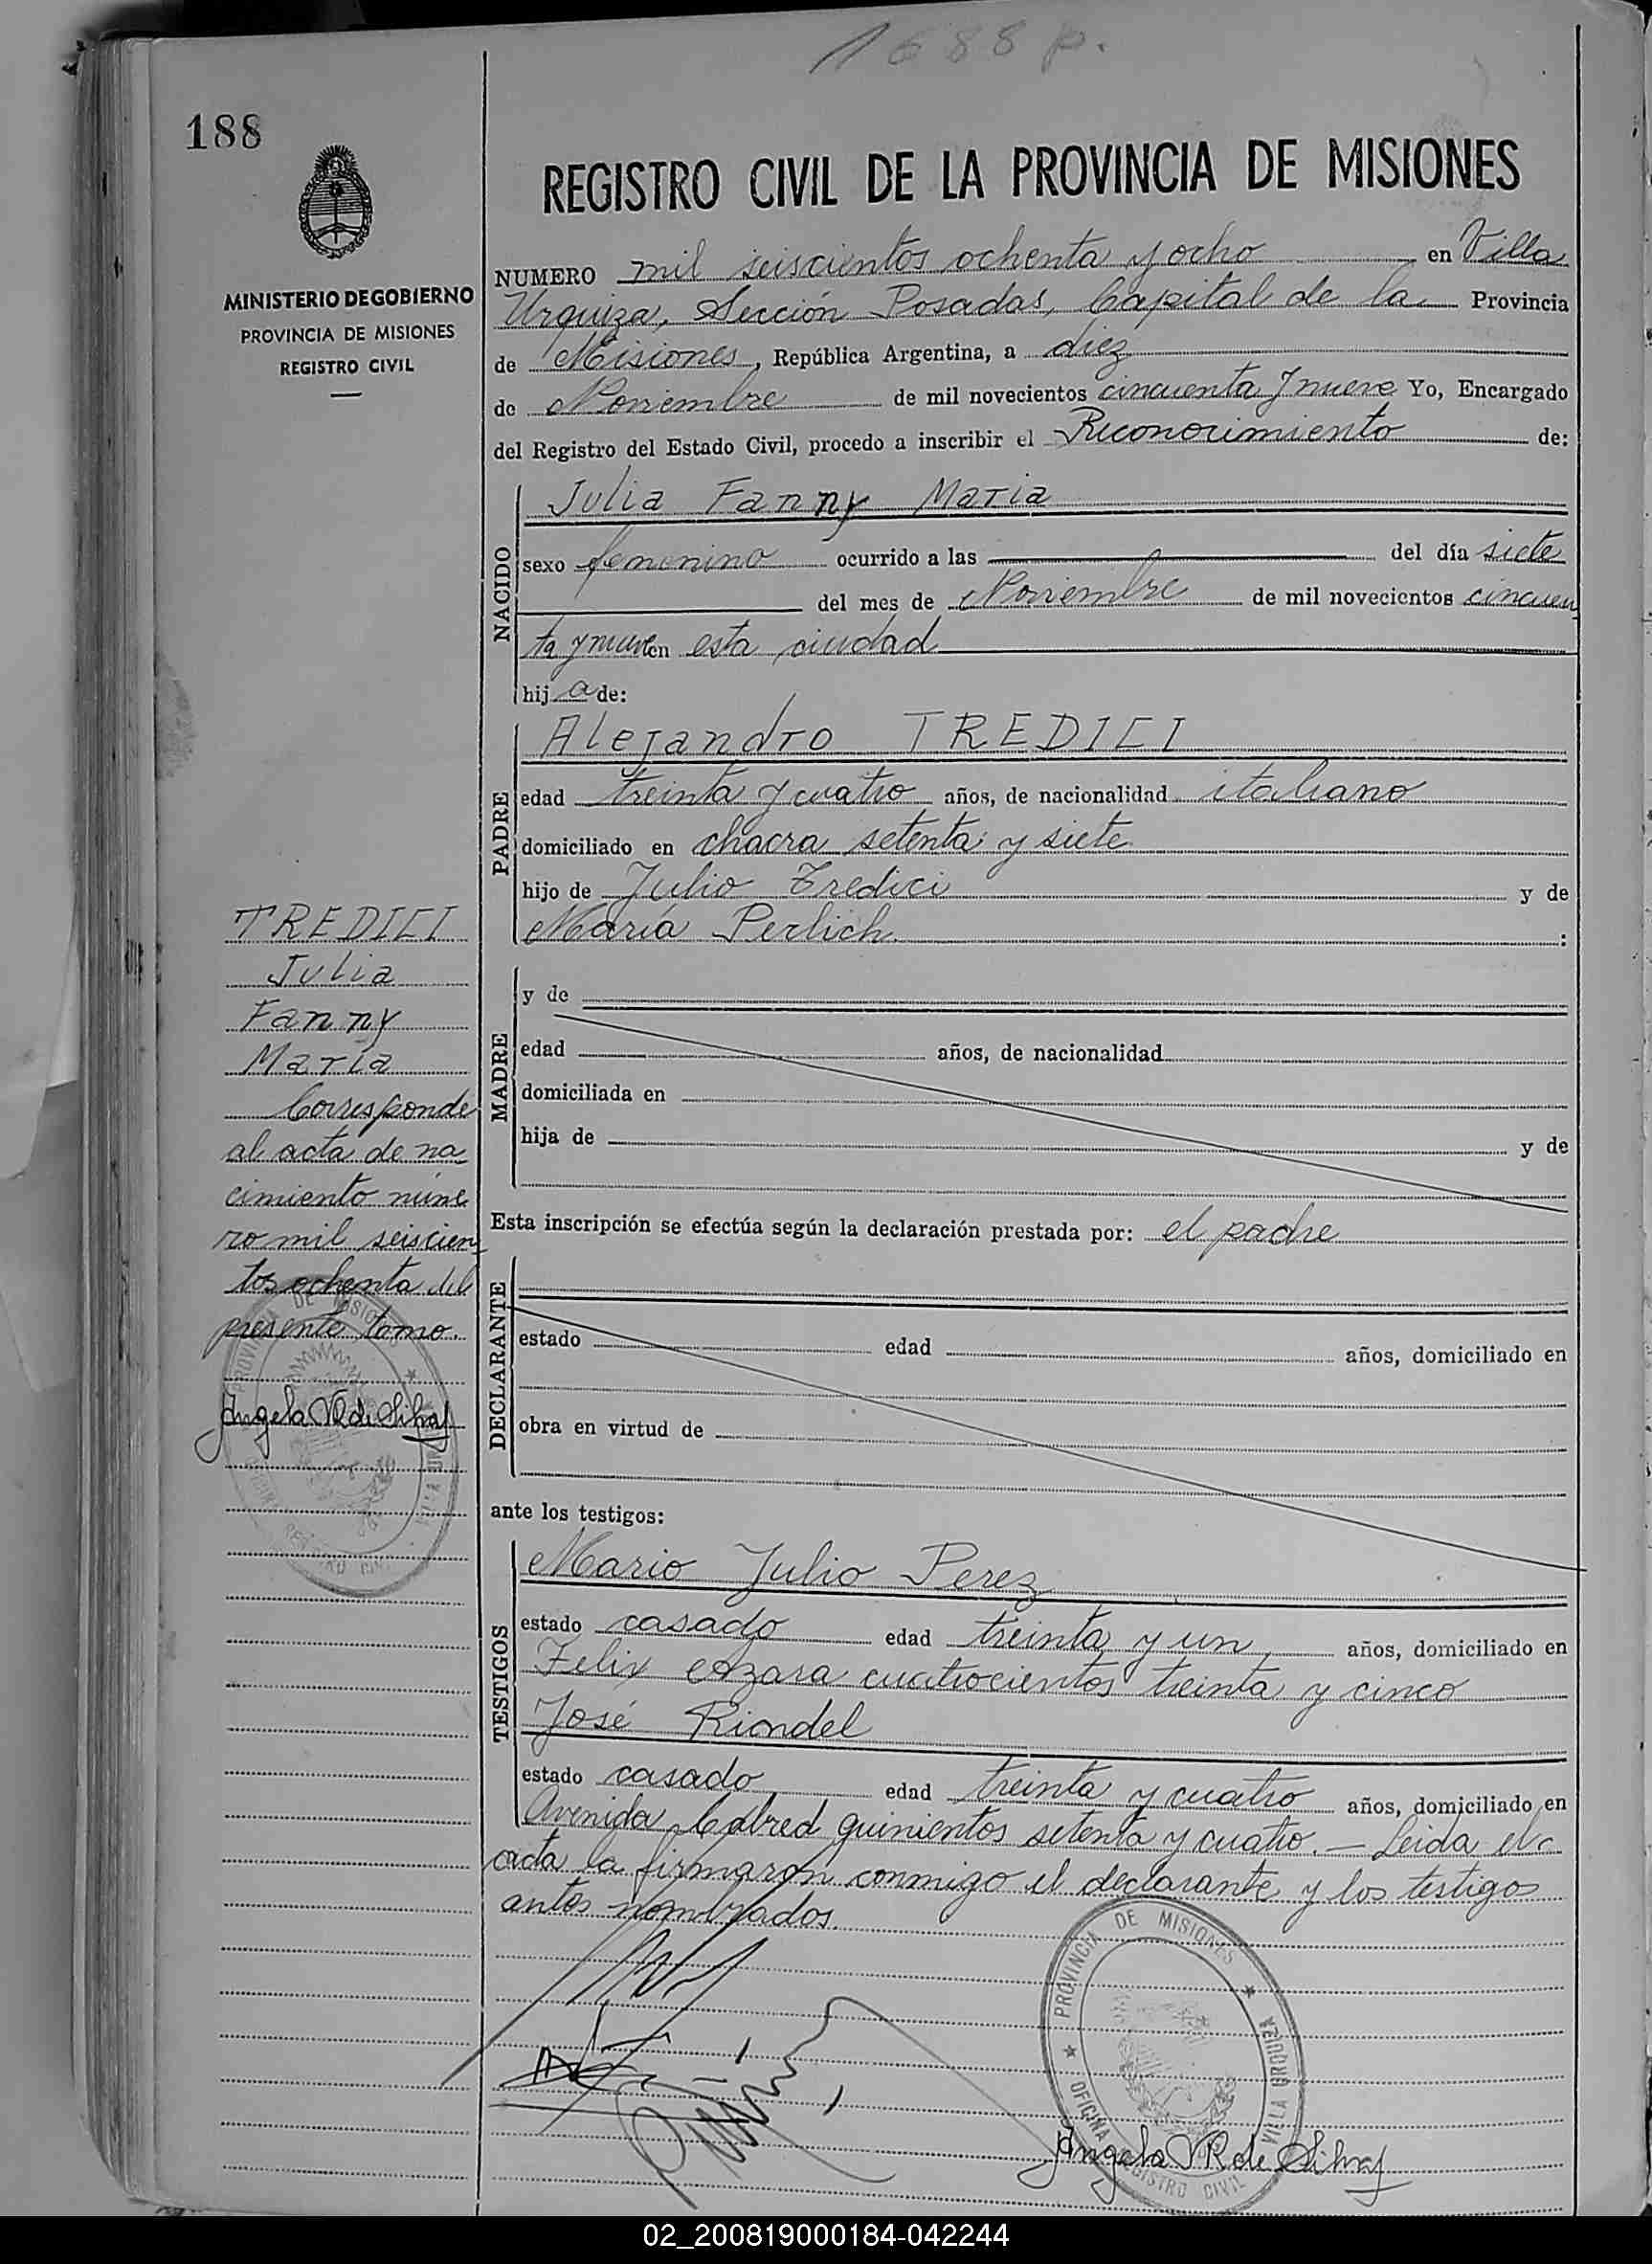 1688 p.
188
MINISTERIO DE GOBIERNO
PROVINCIA DE MISIONES
REGISTRO CIVIL
REGISTRO CIVIL DE LA PROVINCIA DE MISIONES
NUMERO mil seiscientos ochenta y ocho en Villa
Urquiza, Sección Posadas, Capital de la Provincia
de Misiones, República Argentina, a diez
de Noviembre de mil novecientos cincuenta y nueve Yo, Encargado
del Registro del Estado Civil, procedo a inscribir el Reconocimiento de:
NACIDO
Julia Fanny Maria
sexo femenino ocurrido a las del día siete
del mes de Noviembre de mil novecientos cincuen
ta y nueve en esta ciudad
hija de:
PADRE
Alejandro TREDICI
edad treinta y cuatro años, de nacionalidad italiano
domiciliado en chacra setenta y siete
hijo de Julio Tredici y de
María Perlich :
MADRE
y de
edad años, de nacionalidad
domiciliada en
hija de y de
Esta inscripción se efectúa según la declaración prestada por: el padre
DECLARANTE
estado edad años, domiciliado en
obra en virtud de
ante los testigos:
TESTIGOS
Mario Julio Perez
estado casado edad treinta y un años, domiciliado en
Felix Azara cuatrocientos treinta y cinco
José Riondel
estado casado edad treinta y cuatro años, domiciliado en
Avenida Cabred quinientos setenta y cuatro.— Leida el
acta la firmaron conmigo el declarante y los testigos
antes nombrados.
TREDICI
Julia
Fanny
María
Corresponde
al acta de na-
cimiento núme
ro mil seiscien
tos ochenta del
presente tomo.
PROVINCIA DE MISIONES
Angela R de Silva
PROVINCIA DE MISIONES ★ VILLA URQUIZA
★ OFICINA REGISTRO CIVIL
Angela R de Silva
02_200819000184-042244